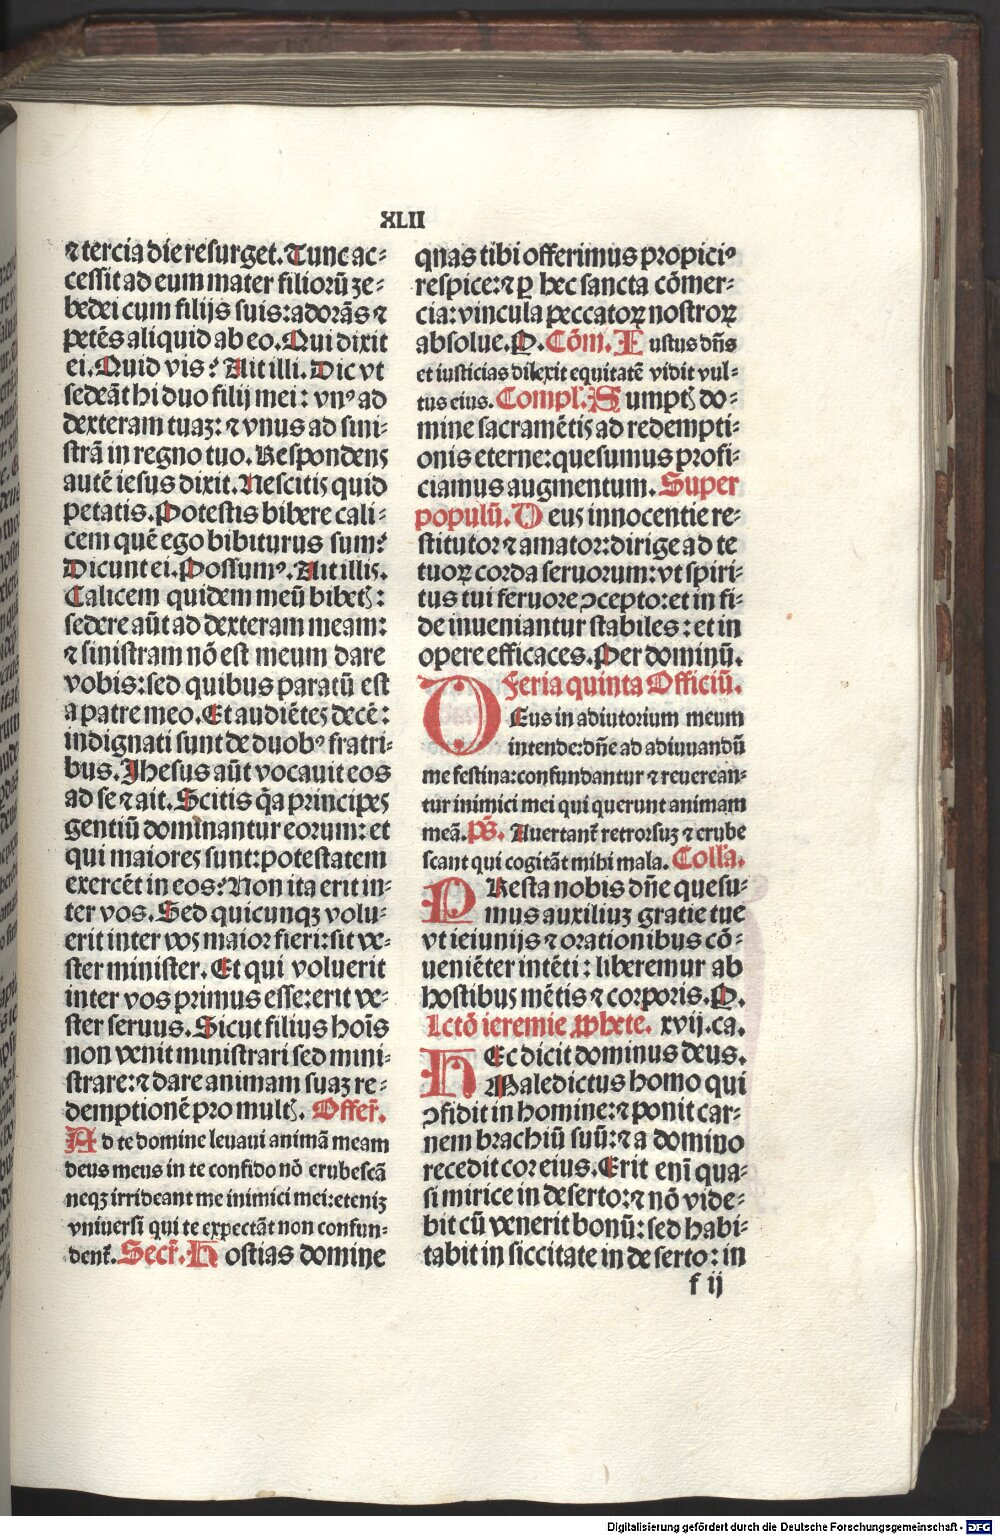 XLII
⁊ tercia die resurget. Tunc ac⸗
cessit ad eum mater filiorū ze⸗
bedei cum filijs suis: adorās ⁊
petēs aliquid ab eo. Qui dixit
ei. Quid vis? Ait illi. Dic vt
sedeāt hi duo filij mei: vnꝰ ad
dexteram tuaꝫ: ⁊ vnus ad sini⸗
strā in regno tuo. Respondens
autē iesus dixit. Nescitis quid
petatis. Potestis bibere cali⸗
cem quē ego bibiturus sum?
Dicunt ei. Possumꝰ. Ait illis.
Calicem quidem meū bibetꝭ:
sedere aūt ad dexteram meam:
⁊ sinistram nō est meum dare
vobis: sed quibus paratū est
a patre meo. Et audiētes decē:
indignati sunt de duobꝰ fratri⸗
bus. Jhesus aūt vocauit eos
ad se ⁊ ait. Scitis q̄a principes
gentiū dominantur eorum: et
qui maiores sunt: potestatem
exercēt in eos? Non ita erit in⸗
ter vos. Sed quicunqꝫ volu⸗
erit inter vos maior fieri: sit ve⸗
ster minister. Et qui voluerit
inter vos primus esse: erit ve⸗
ster seruus. Sicut filius hoīs
non venit ministrari sed mini⸗
strare: ⁊ dare animam suaꝫ re⸗
demptionē pro multꝭ. Offer̄.
Ad te domine leuaui animā meam
deus meus in te confido nō erubescā
neqꝫ irrideant me inimici mei: etenīꝫ
vniuersi qui te expectāt non confun⸗
dent̄. Secr̄. Hostias domine
quas tibi offerimus propiciꝰ
respice: ⁊ ꝑ hec sancta cōmer⸗
cia: vincula peccatoꝝ nostroꝝ
absolue. P. Cōm. Iustus dn̄s
et iusticias dilexit equitatē vidit vul⸗
tus eius. Compl̄. Sumptꝭ do⸗
mine sacramētis ad redempti⸗
onis eterne: quesumus profi⸗
ciamus augmentum. Super
populū. Deus innocentie re⸗
stitutor ⁊ amator: dirige ad te
tuoꝝ corda seruorum: vt spiri⸗
tus tui feruore ↄcepto: et in fi⸗
de inueniantur stabiles: et in
opere efficaces. Per dominū.
Feria quinta Officiū.
DEus in adiutorium meum
intende: dn̄e ad adiuuandū
me festina: confundantur ⁊ reuerean⸗
tur inimici mei qui querunt animam
meā. Ps̄. Auertant̄ retrorsuꝫ ⁊ erube
scant qui cogitāt mihi mala. Coll̄a.
PResta nobis dn̄e quesu⸗
mus auxiliuꝫ gratie tue
vt ieiunijs ⁊ orationibus cō⸗
ueniēter intēti: liberemur ab
hostibus mētis ⁊ corporis. P.
Lctō ieremie ꝓphete. xvij. ca.
HEc dicit dominus deus.
Maledictus homo qui
ↄfidit in homine: ⁊ ponit car⸗
nem brachiū suū: ⁊ a domino
recedit cor eius. Erit enī qua⸗
si mirice in deserto: ⁊ nō vide⸗
bit cū venerit bonū: sed habi⸗
tabit in siccitate in deserto: in
f ij
Digitalisierung gefördert durch die Deutsche Forschungsgemeinschaft - DFG